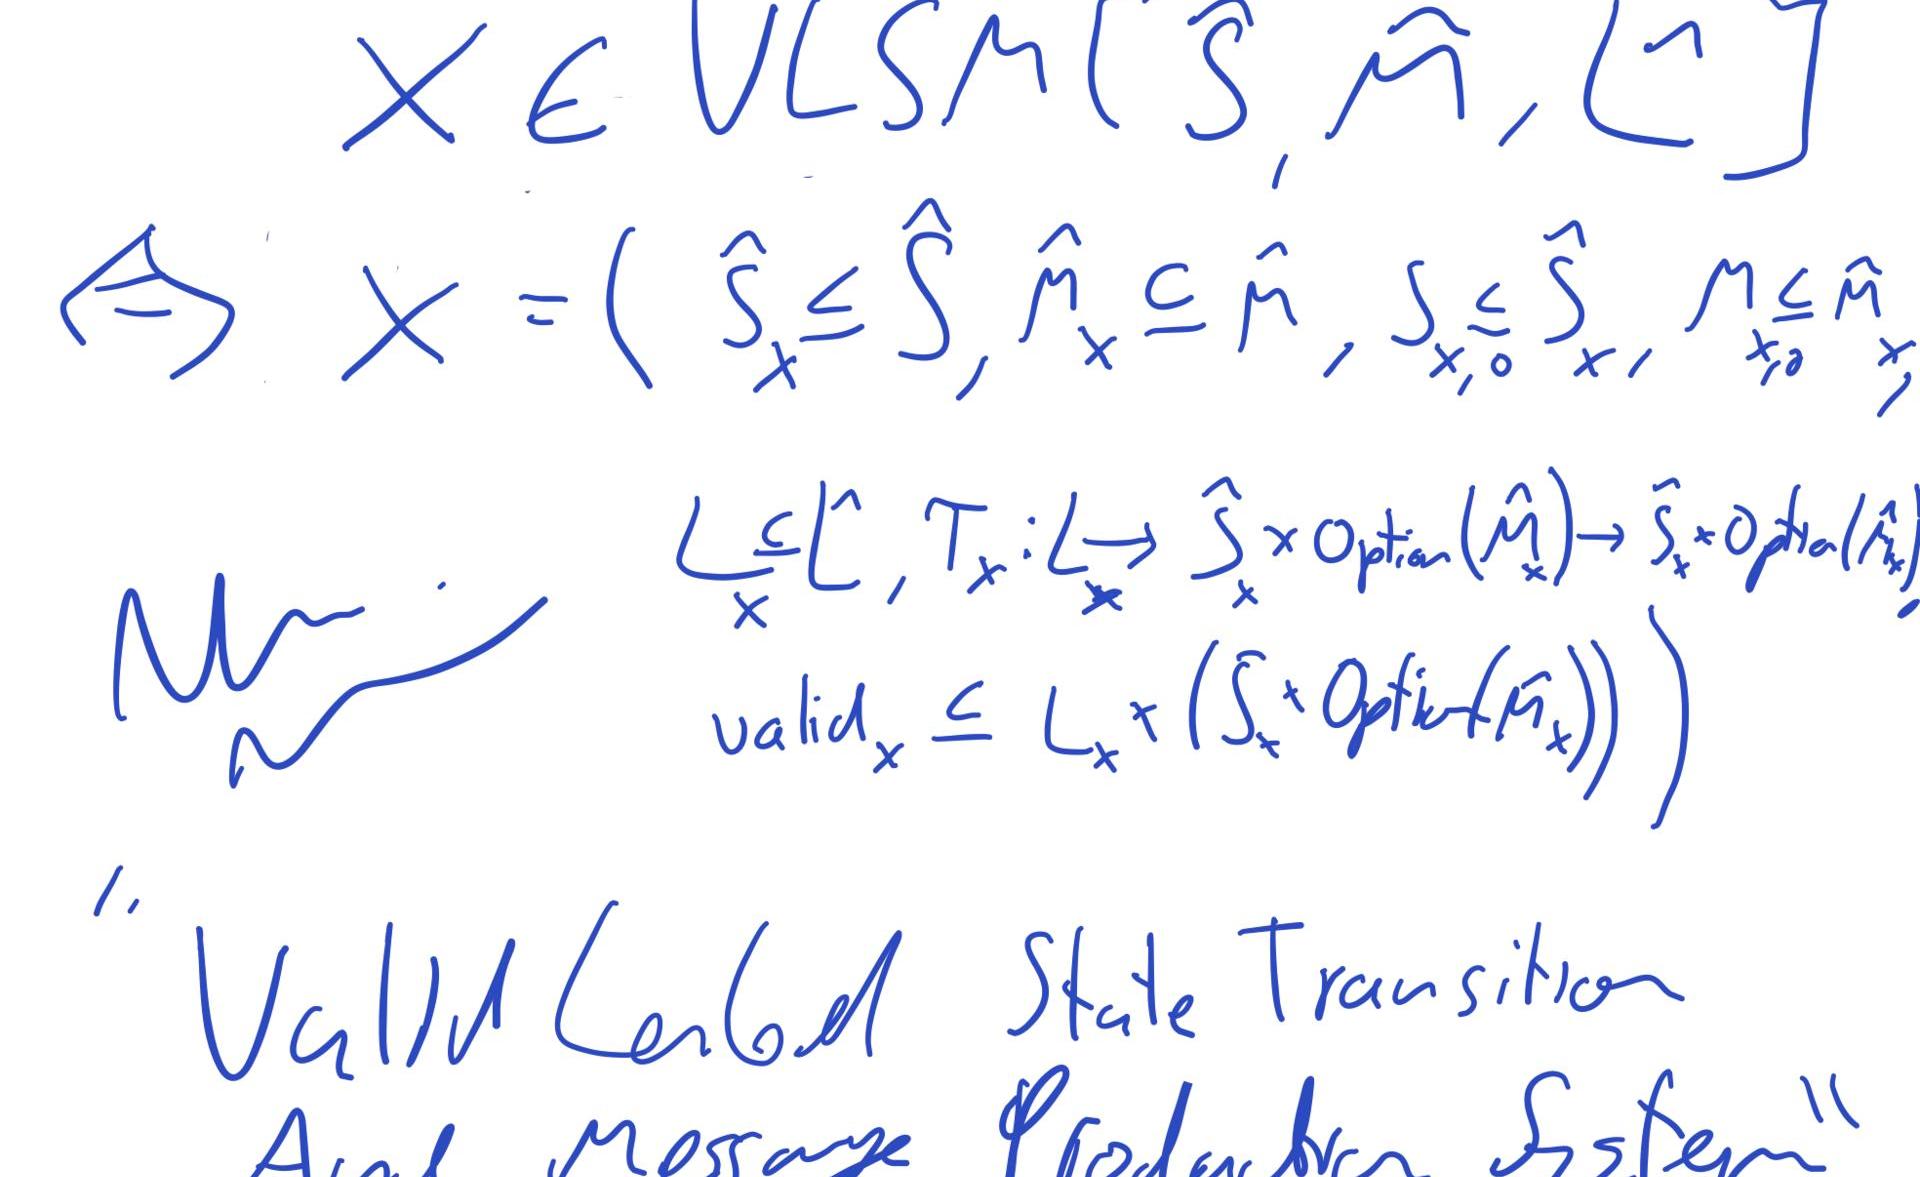 X ∈ VLSM[Ŝ, M̂, L̂]
⇔ X = (Ŝ_X ⊆ Ŝ, M̂_X ⊆ M̂, S_{X,0} ⊆ Ŝ_X, M_{X,0} ⊆ M̂_X,
L_X ⊆ L̂, T_X : L_X → Ŝ_X × Option(M̂_X) → Ŝ_X × Option(M̂_X),
valid_X ⊆ L_X × (Ŝ_X × Option(M̂_X)))
"Valid Labeled State Transition
And Message Production System"